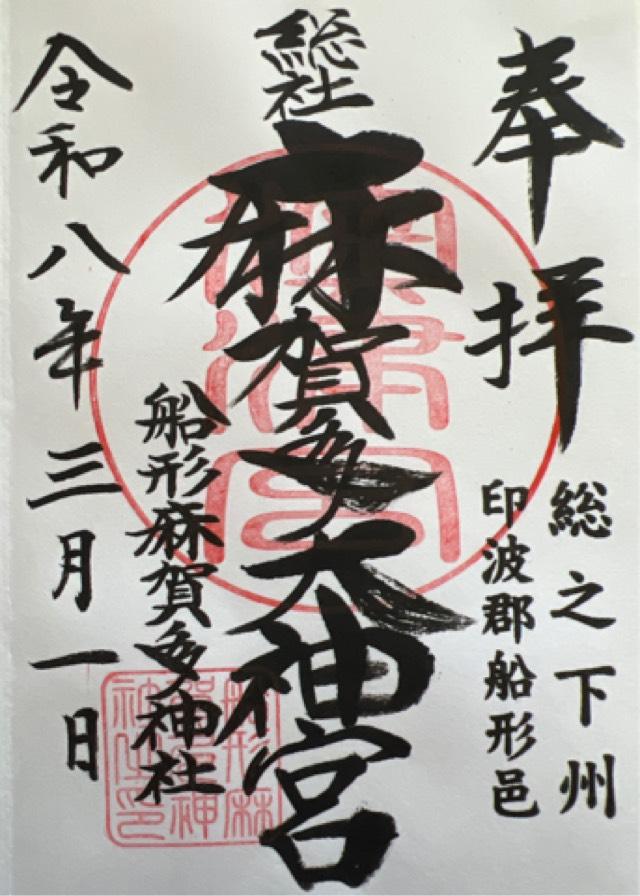 奉拝
総之下州
印波郡船形邑
総社
麻賀多大神宮
船形麻賀多神社
令和八年三月一日